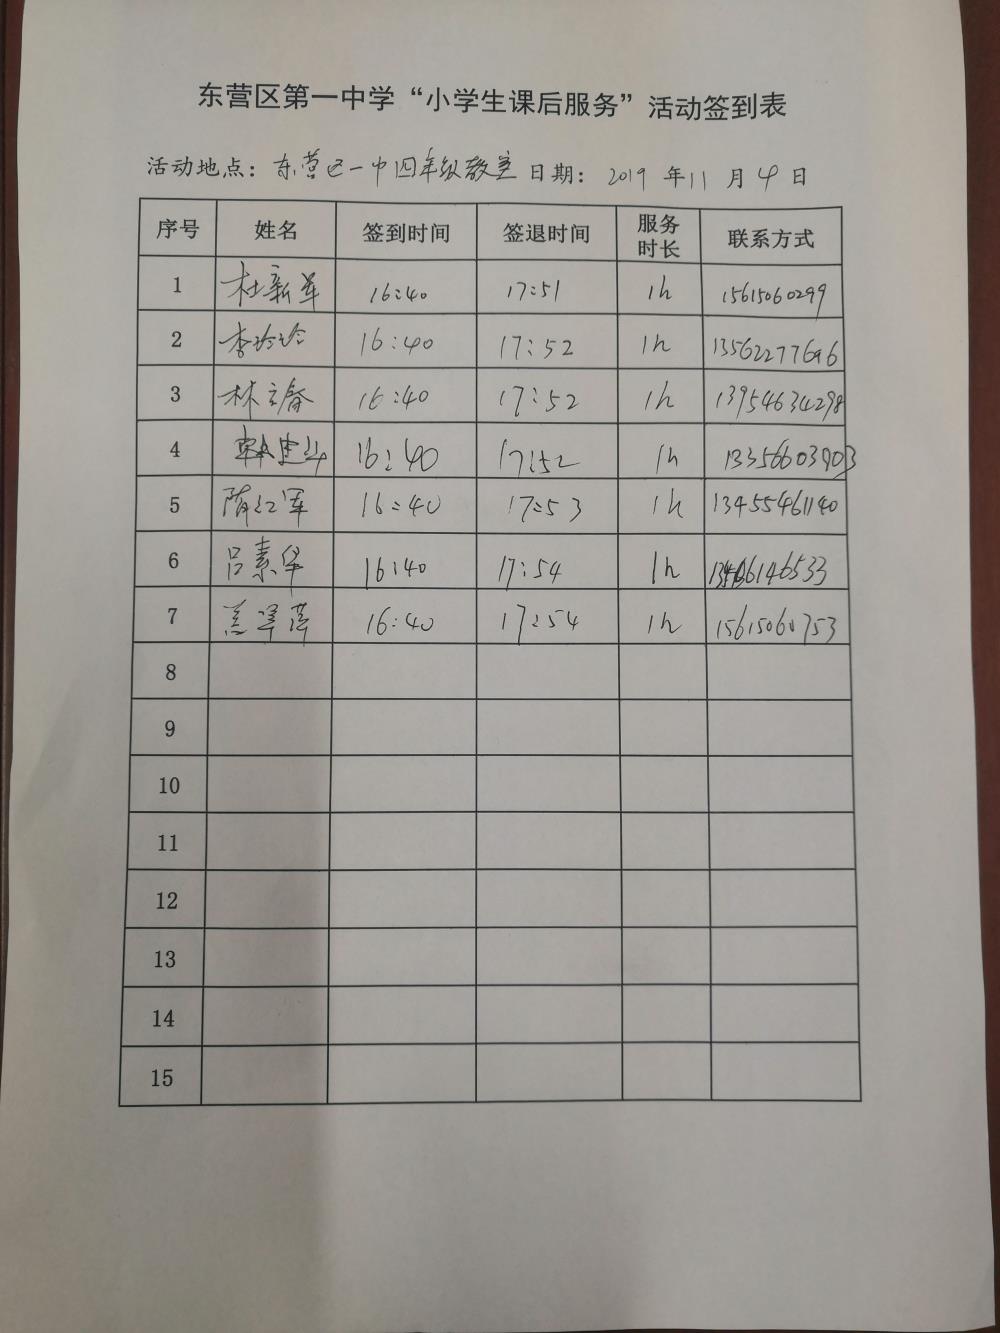 东营区第一中学“小学生课后服务”活动签到表
活动地点：东营区一中四年级教室 日期： 2019 年 11 月 4 日
序号 姓名 签到时间 签退时间 服务时长 联系方式
1 杜新军 16:40 17:51 1h 15615060299
2 李玲玲 16:40 17:52 1h 13562277696
3 林立春 16:40 17:52 1h 13954634298
4 16:40 17:52 1h 13356603903
5 隋红军 16:40 17:53 1h 13455461140
6 吕素华 16:40 17:54 1h
7 16:40 17:54 1h 15615060753
8
9
10
11
12
13
14
15